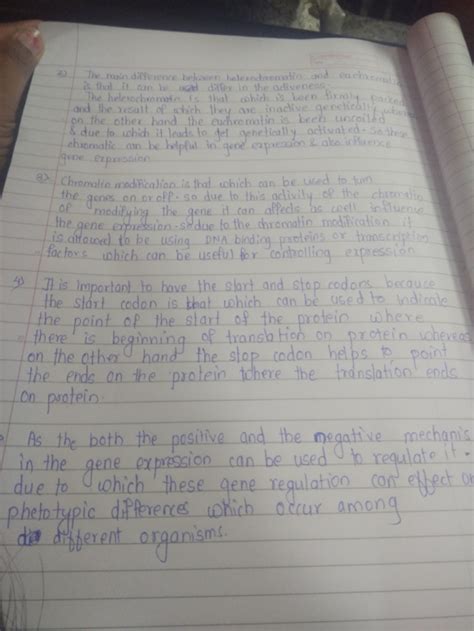 2) The main difference between heterochromatin and euchromatin
is that it can be differ in the activeness.
The heterochromatin is that which is been firmly packed
and the result of which they are inactive genetically whereas
on the other hand the euchromatin is been uncoiled
& due to which it leads to get genetically activated. So these
chromatic can be helpful in gene expression & also influence
gene expression
3) Chromatin modification is that which can be used to turn
the genes on or off. so due to this activity of the chromatin
of modifying the gene it can affects as well influence
the gene expression. so due to the chromatin modification it
is allowed to be using DNA binding proteins or transcription
factors which can be useful for controlling expression
4) It is important to have the start and stop codons because
the start codon is that which can be used to indicate
the point of the start of the protein where
there is beginning of translation on protein whereas
on the other hand the stop codon helps to point
the ends on the protein where the translation ends
on protein.
As the both the positive and the negative mechanis
in the gene expression can be used to regulate it.
due to which these gene regulation can effect on
phetotypic differences which occur among
different organisms.